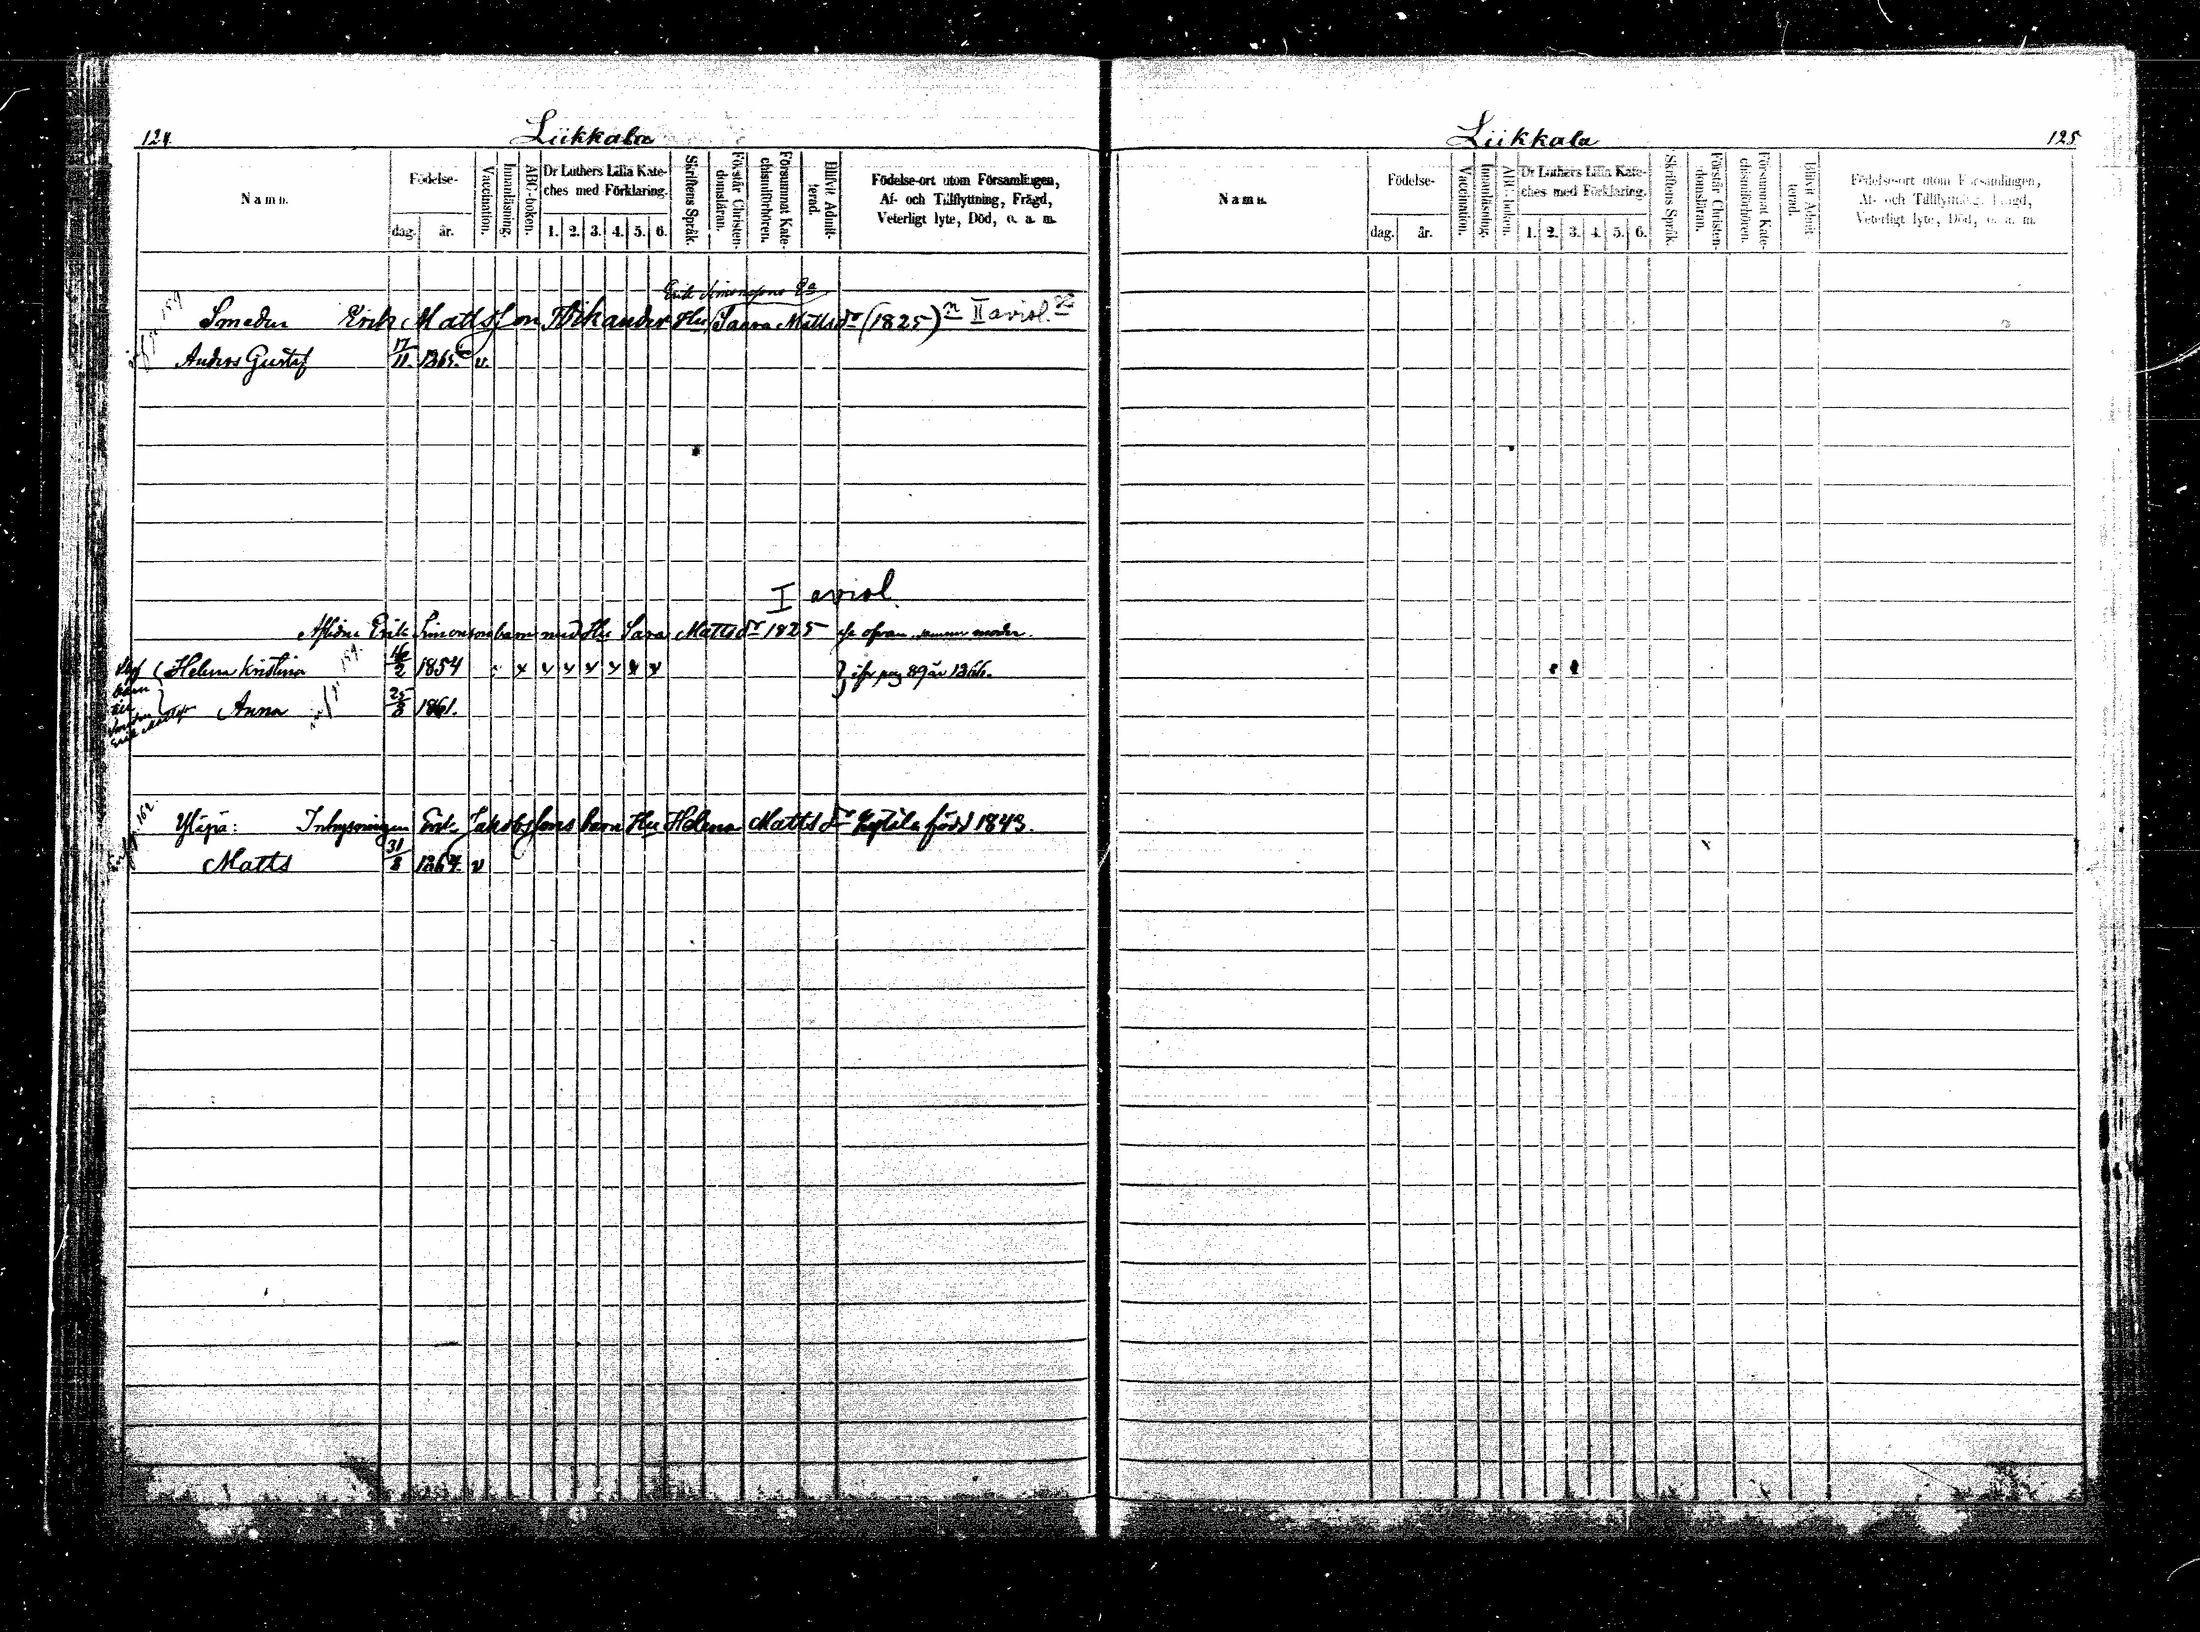 124.
Liikkala
Namn.
Födelse-
dag.
år.
Vaccination.
Innanläsning.
ABC-boken.
Dr Luthers Lilla Kate-
ches med Förklaring.
1. 2. 3. 4. 5. 6.
Skriftens Språk.
Förstår Christen-
domsläran.
Försummat Kate-
chismiförhören.
Blifvit Admit-
terad.
Födelse-ort utom Församlingen,
Af- och Tillflyttning, Frägd,
Veterligt lyte, Död, o. a. m.
Erik Simonssons Ea
Smeden Erik Mattsson Hu Saara Matts dr (1825) II aviol.
Anders Gustaf 17/11. 1865. v.
I aviol.
Aflidne Erik Simonsons barn med Hu Sara Matts dr 1825 se ofvan samma moder.
Helena Kristina 16/2 1854 v v v v v v v pag 89 år 1866.
barn
Anna 25/3 1861.
Erik Mattsson
Ylipä: Inhysningen Erik Jakobssons barn Hu Helena Matts dr född 1843.
Matts 31/8 1864. v
Liikkala
125
Namn.
Födelse-
dag.
år.
Vaccination.
Innanläsning.
ABC-boken.
Dr Luthers Lilla Kate-
ches med Förklaring.
1. 2. 3. 4. 5. 6.
Skriftens Språk.
Förstår Christen-
domsläran.
Försummat Kate-
chismiförhören.
Blifvit Admit-
terad.
Födelse-ort utom Församlingen,
Af- och Tillflyttning, Frägd,
Veterligt lyte, Död, o. a. m.